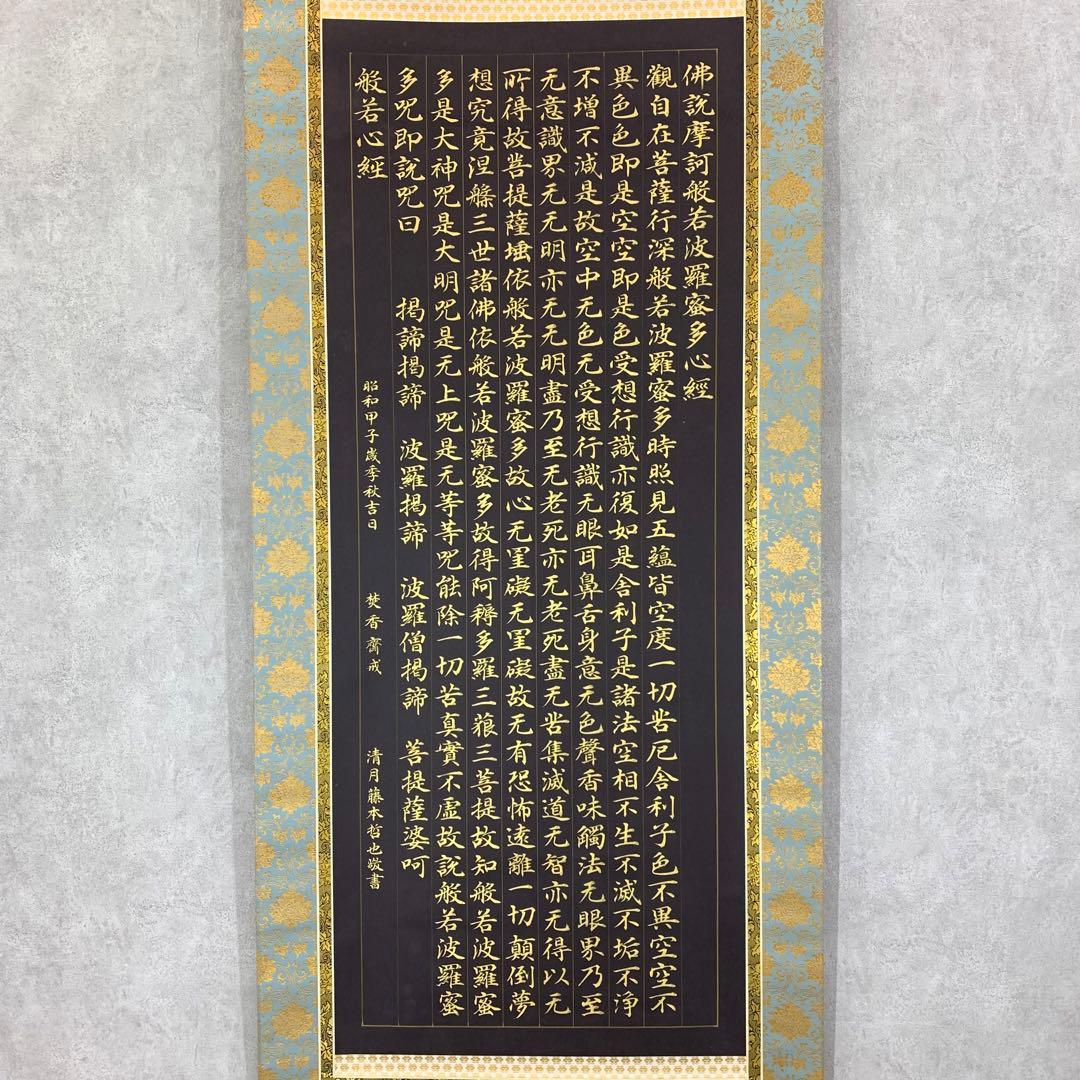 佛説摩訶般若波羅蜜多心經
觀自在菩薩行深般若波羅蜜多時照見五蘊皆空度一切苦厄舍利子色不異空空不
異色色即是空空即是色受想行識亦復如是舍利子是諸法空相不生不滅不垢不浄
不增不減是故空中无色无受想行識无眼耳鼻舌身意无色聲香味觸法无眼界乃至
无意識界无无明亦无无明盡乃至无老死亦无老死盡无苦集滅道无智亦无得以无
所得故菩提薩埵依般若波羅蜜多故心无罣礙无罣礙故无有恐怖遠離一切顛倒夢
想究竟涅槃三世諸佛依般若波羅蜜多故得阿耨多羅三藐三菩提故知般若波羅蜜
多是大神咒是大明咒是无上咒是无等等咒能除一切苦真實不虛故説般若波羅蜜
多咒即説咒曰 揭諦揭諦 波羅揭諦 波羅僧揭諦 菩提薩婆呵
般若心經
昭和甲子歳季秋吉日 焚香齋戒 清月藤本哲也敬書